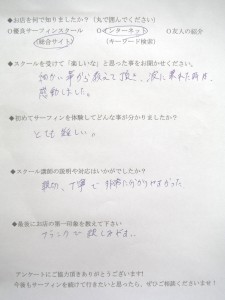 ◆お店を何で知りましたか?（丸で囲んでください）
○優良サーフィンスクール　○インターネット　○友人の紹介
（総合サイト）　（キーワード検索）
◆スクールを受けて「楽しいな」と思った事をお聞かせください。
細かい事から教えて頂き、波に乗れた時は、
感動しました。
◆初めてサーフィンを体験してどんな事が分かりましたか?
とても難しい。
◆スクール講師の説明や対応はいかがでしたか?
親切、丁寧で非常に分かりやすかった
◆最後にお店の第一印象を教えて下さい
フランクで親しみやすい
アンケートにご協力頂きありがとうございます!
今後もサーフィンを続けて行きたいと思ったら、ぜひご相談くださいませ!